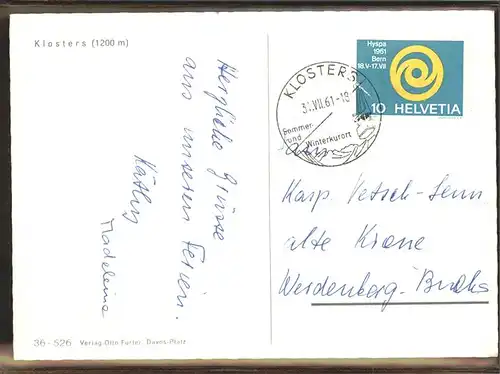 Klosters (1200 m)
Herzliche Grüsse
aus unseren Ferien.
Käthy
Madeleine
36-526 Verlag Otto Furter, Davos-Platz
Hyspa
1961
Bern
18.V-17.VII
10 HELVETIA
KLOSTERS
VII.61-18
Sommer-
und Winterkurort
Kasp. Vetsch-Senn
alte Krone
Werdenberg-Buchs